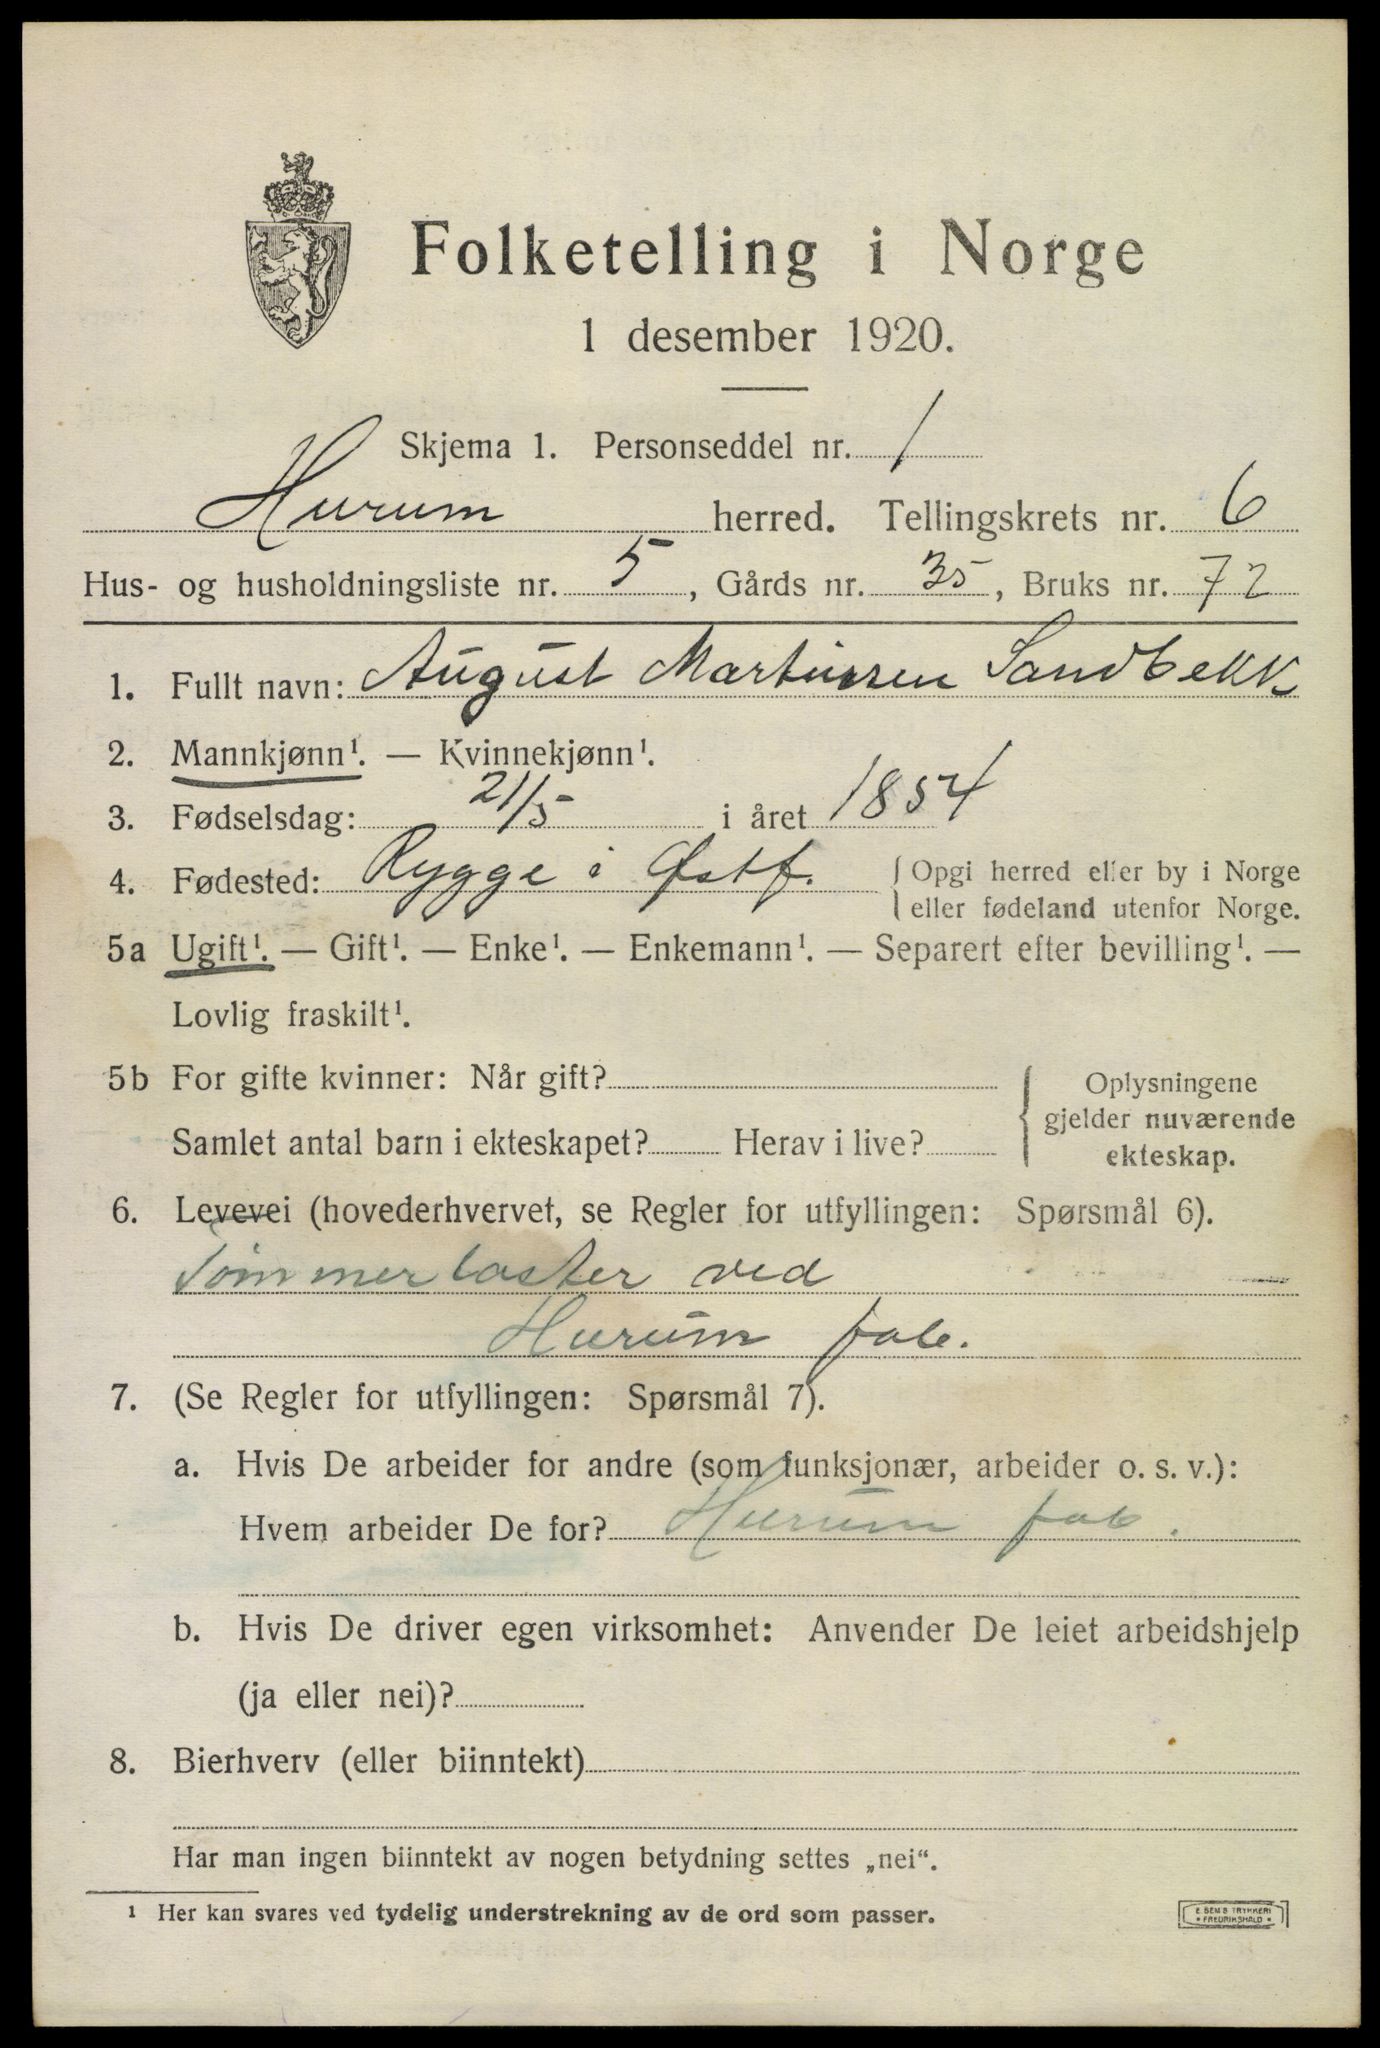 Folketelling i Norge
1 desember 1920.
Skjema 1. Personseddel nr. 1
Hurum herred. Tellingskrets nr. 6
Hus- og husholdningsliste nr. 5, Gårds nr. 35, Bruks nr. 72
1. Fullt navn: August Martinsen Sandbekk
2. Mannkjønn¹. — Kvinnekjønn¹.
3. Fødselsdag: 21/5 i året 1854
4. Fødested: Rygge i Østf. { Opgi herred eller by i Norge
eller fødeland utenfor Norge.
5a Ugift¹. — Gift¹. — Enke¹. — Enkemann¹. — Separert efter bevilling¹. —
Lovlig fraskilt¹.
5b For gifte kvinner: Når gift? { Oplysningene
gjelder nuværende
Samlet antal barn i ekteskapet? Herav i live?
ekteskap.
6. Levevei (hovederhvervet, se Regler for utfyllingen: Spørsmål 6).
Tømmerlaster ved
Hurum fab.
7. (Se Regler for utfyllingen: Spørsmål 7).
a. Hvis De arbeider for andre (som funksjonær, arbeider o. s. v.):
Hvem arbeider De for? Hurum fab.
b. Hvis De driver egen virksomhet: Anvender De leiet arbeidshjelp
(ja eller nei)?
8. Bierhverv (eller biinntekt)
Har man ingen biinntekt av nogen betydning settes „nei“.
¹ Her kan svares ved tydelig understrekning av de ord som passer.
E. SEM'S TRYKKERI
* FREDRIKSHALD *